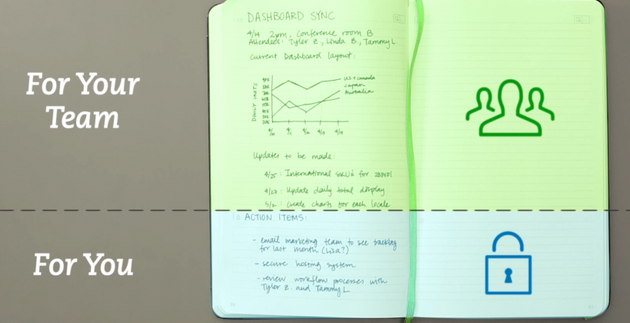 For Your
Team
DASHBOARD SYNC
4/14 2pm, Conference room B
Attended: Tyler Z., Linda B., Tammy L.
Current Dashboard layout:
US + Canada
Japan
Australia
Updates to be made:
4/25: International for
4/28: Update daily total display
5/2: Create charts for each locale
ACTION ITEMS:
- email marketing team to see tracking
for last month (Lisa?)
- secure hosting system
- review workflow processes with
Tyler Z. and Tammy L.
For You